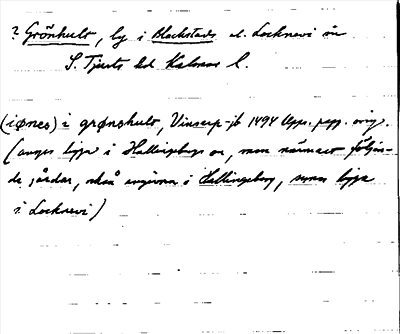 ? Grönhult, by i Blackstads el. Locknevi sn
S. Tjusts hd Kalmar l.
(iønes) i grønshult, Vinsarp-jb 1494 Upps. papp. orig.
(anges ligga i Hallingebergs sn, men närmast följan-
de gårdar, också angivna i Hallingeberg, synas ligga
i Locknevi)